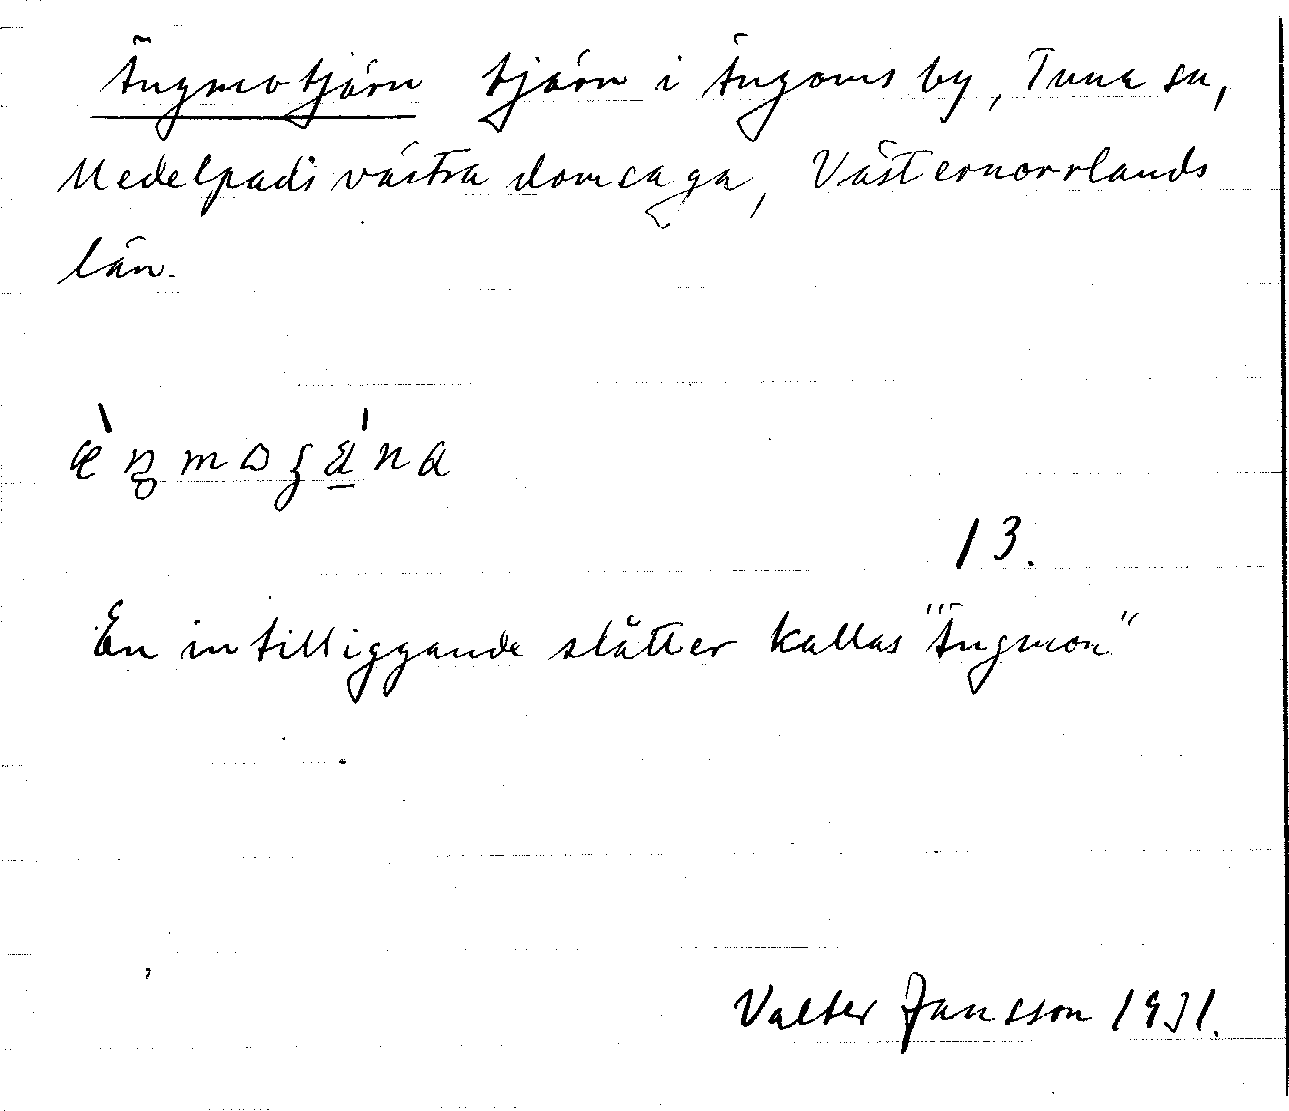 Ängmotjärn tjärn i Ängoms by, Tuna sn,
Medelpads västra domsaga, Västernorrlands
län.
æ̀ŋmoʒá̲na
13.
En intilliggande slåtter kallas "Ängmon"
Valter Jansson 1931.